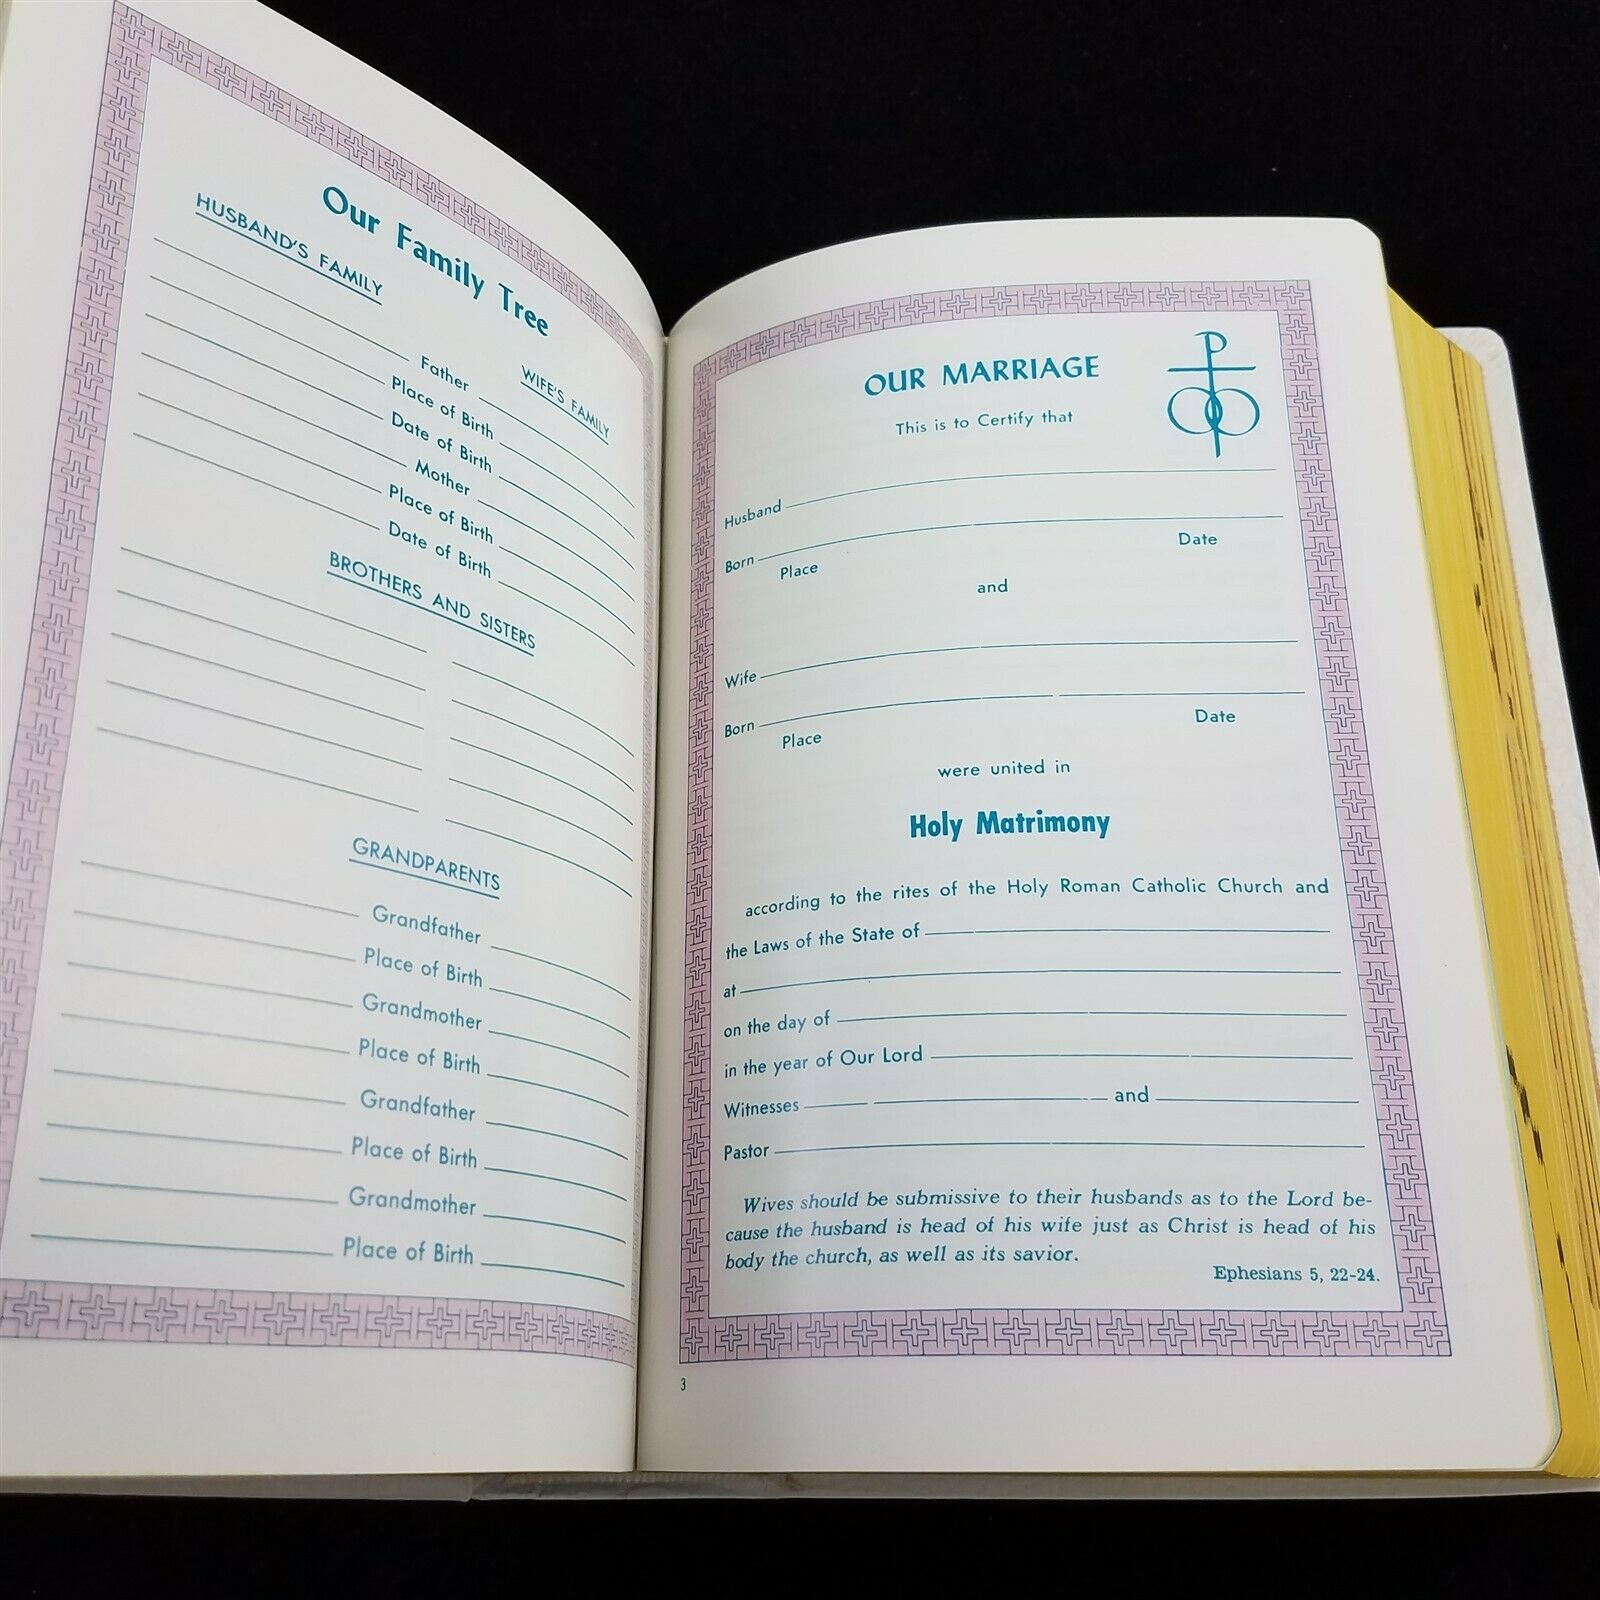 Our Family Tree
HUSBAND'S FAMILY
WIFE'S FAMILY
Father
Place of Birth
Date of Birth
Mother
Place of Birth
Date of Birth
BROTHERS AND SISTERS
GRANDPARENTS
Grandfather
Place of Birth
Grandmother
Place of Birth
Grandfather
Place of Birth
Grandmother
Place of Birth
OUR MARRIAGE
This is to Certify that
Husband
Born
Place Date
and
Wife
Born
Place Date
were united in
Holy Matrimony
according to the rites of the Holy Roman Catholic Church and
the Laws of the State of
at
on the day of
in the year of Our Lord
Witnesses and
Pastor
Wives should be submissive to their husbands as to the Lord be-
cause the husband is head of his wife just as Christ is head of his
body the church, as well as its savior.
Ephesians 5, 22-24.
3